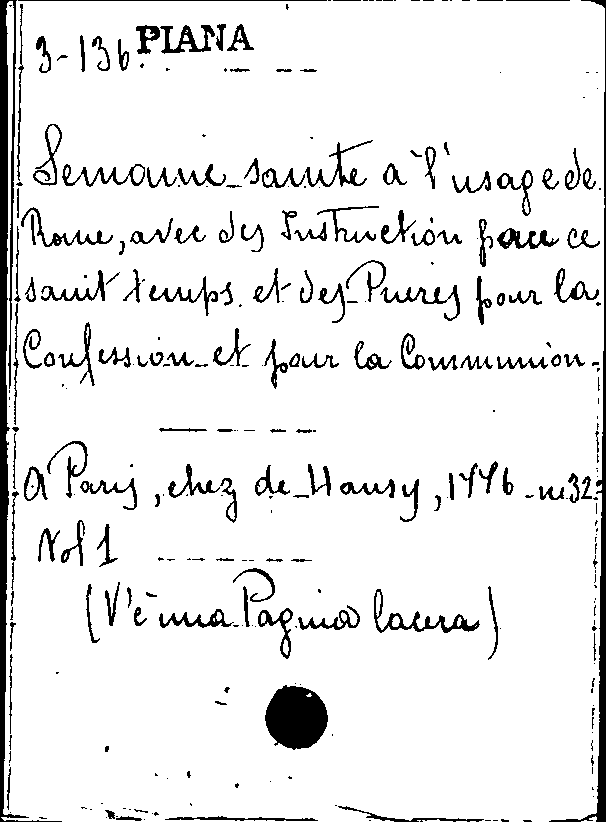 3-136. PIANA
Semaine sainte à l'usage de
Rome, avec des Instruction pour ce
saint temps et des Prieres pour la
Confession et pour la Communion.
A Paris, chez de Hansy, 1776 - in 32:
Vol 1
(V'é una Pagina lacera)